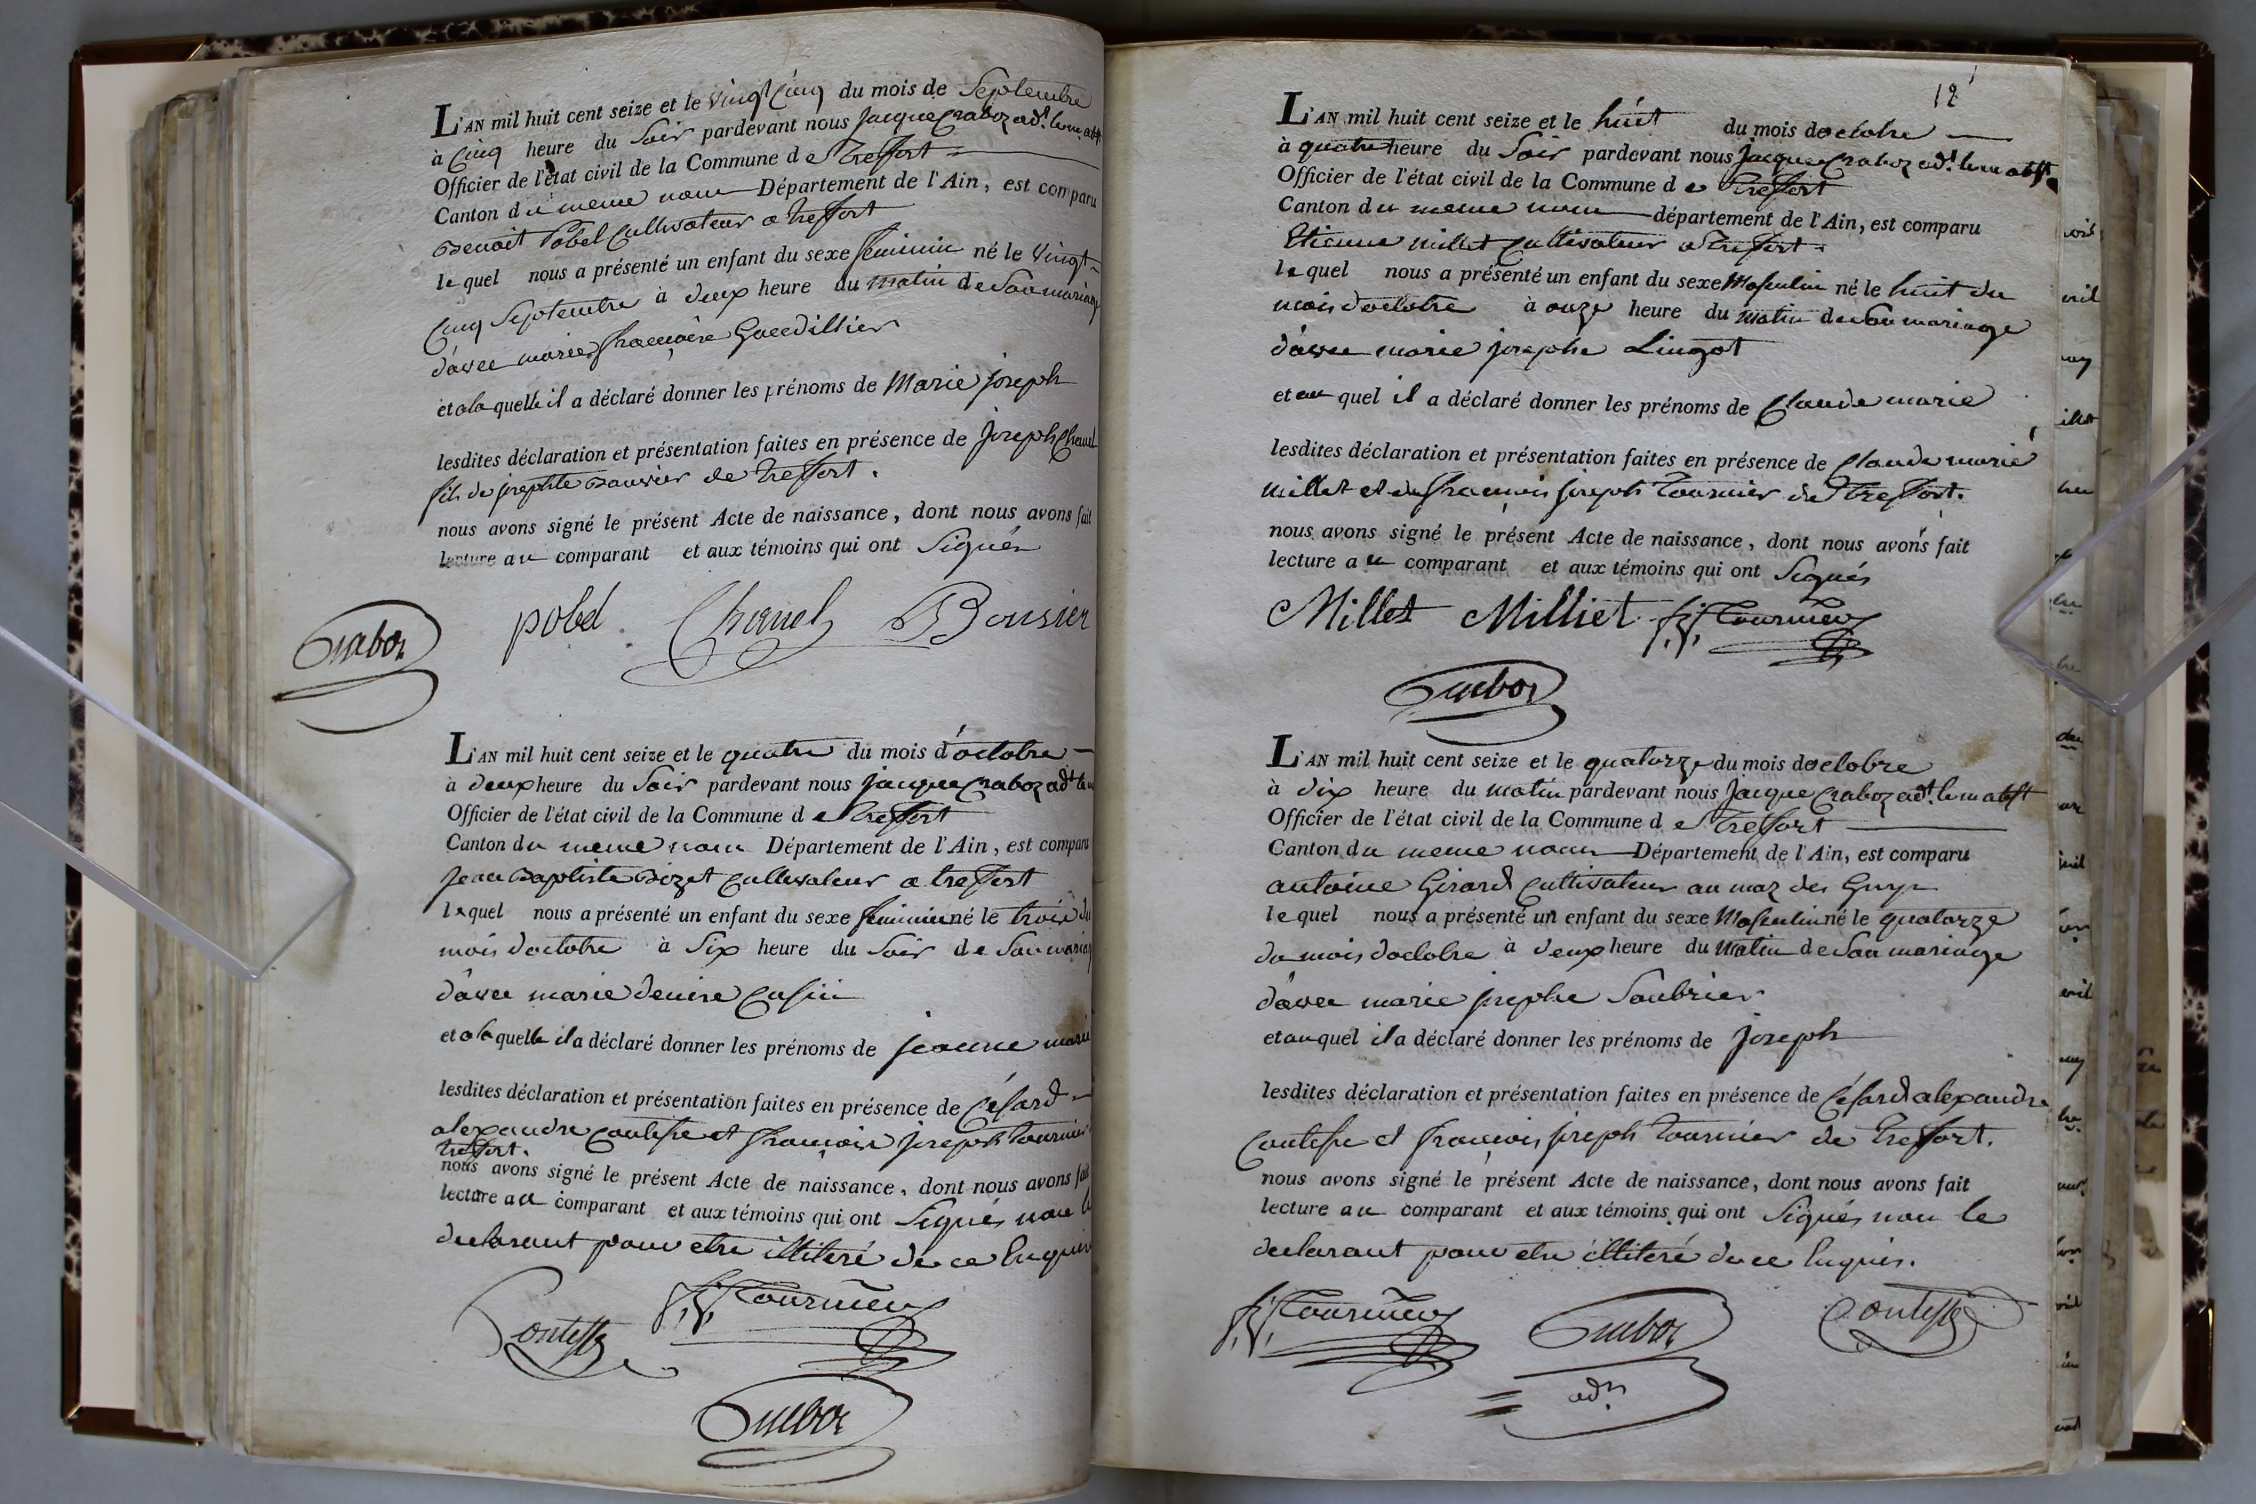 L'AN mil huit cent seize et le vingt cinq du mois de Septembre
à cinq heure du Soir pardevant nous Jacque Craboz adt. le m. abst
Officier de l'état civil de la Commune de Treffort
Canton du meme nom Département de l'Ain, est comparu
Benoit Pobel Cultivateur a treffort
lequel nous a présenté un enfant du sexe feminin né le vingt-
cinq Septembre à deux heure du matin de Son mariage
d'avec marie françoise
et a laquelle il a déclaré donner les prénoms de Marie joseph
lesdites déclaration et présentation faites en présence de joseph Chanel
fils de josephte Bouvier de treffort.
nous avons signé le présent Acte de naissance, dont nous avons fait
lecture au comparant et aux témoins qui ont Signés
pobel Chanel Bousier
Craboz
L'AN mil huit cent seize et le quatre du mois d'octobre
à deux heure du Soir pardevant nous Jacque Craboz adt le m
Officier de l'état civil de la Commune de treffort
Canton du meme nom Département de l'Ain, est comparu
jean Baptiste Bozet Cultivateur a treffort
lequel nous a présenté un enfant du sexe feminin né le trois du
mois doctobre à Six heure du Soir de Son mariage
d'avec marie denise
et a laquelle il a déclaré donner les prénoms de jeanne marie
lesdites déclaration et présentation faites en présence de Césard
alexandre Contesse et françois joseph tournier
treffort.
nous avons signé le présent Acte de naissance, dont nous avons fait
lecture au comparant et aux témoins qui ont Signés non le
declarant pour etre illiteré de ce Enquis
Contesse f. j. Tournier
Craboz
12
L'AN mil huit cent seize et le huit du mois doctobre
à quatre heure du Soir pardevant nous Jacque Craboz adt. le m abst
Officier de l'état civil de la Commune de Treffort
Canton du meme nom département de l'Ain, est comparu
Etienne millet Cultivateur a treffort.
lequel nous a présenté un enfant du sexe Masculin né le huit du
mois doctobre à onze heure du matin de Son mariage
d'avec marie josephe Lingot
et au quel il a déclaré donner les prénoms de Claude marie
lesdites déclaration et présentation faites en présence de Claude marie
millet et de françois joseph tournier de treffort.
nous avons signé le présent Acte de naissance, dont nous avons fait
lecture au comparant et aux témoins qui ont Signés
Millet Milliet f. j. Tournier
Craboz
L'AN mil huit cent seize et le quatorze du mois doctobre
à dix heure du matin pardevant nous Jacque Craboz adt. le m abst
Officier de l'état civil de la Commune de treffort
Canton du meme nom Département de l'Ain, est comparu
antoine Girard Cultivateur au maz des Guy
lequel nous a présenté un enfant du sexe Masculin né le quatorze
du mois doctobre à deux heure du matin de Son mariage
d'avec marie josephe Soubrier
et auquel il a déclaré donner les prénoms de joseph
lesdites déclaration et présentation faites en présence de Césard alexandre
Contesse et françois joseph tournier de treffort.
nous avons signé le présent Acte de naissance, dont nous avons fait
lecture au comparant et aux témoins qui ont Signés non le
declarant pour etre illiteré de ce Enquis.
f. j. Tournier Craboz Contesse
adt